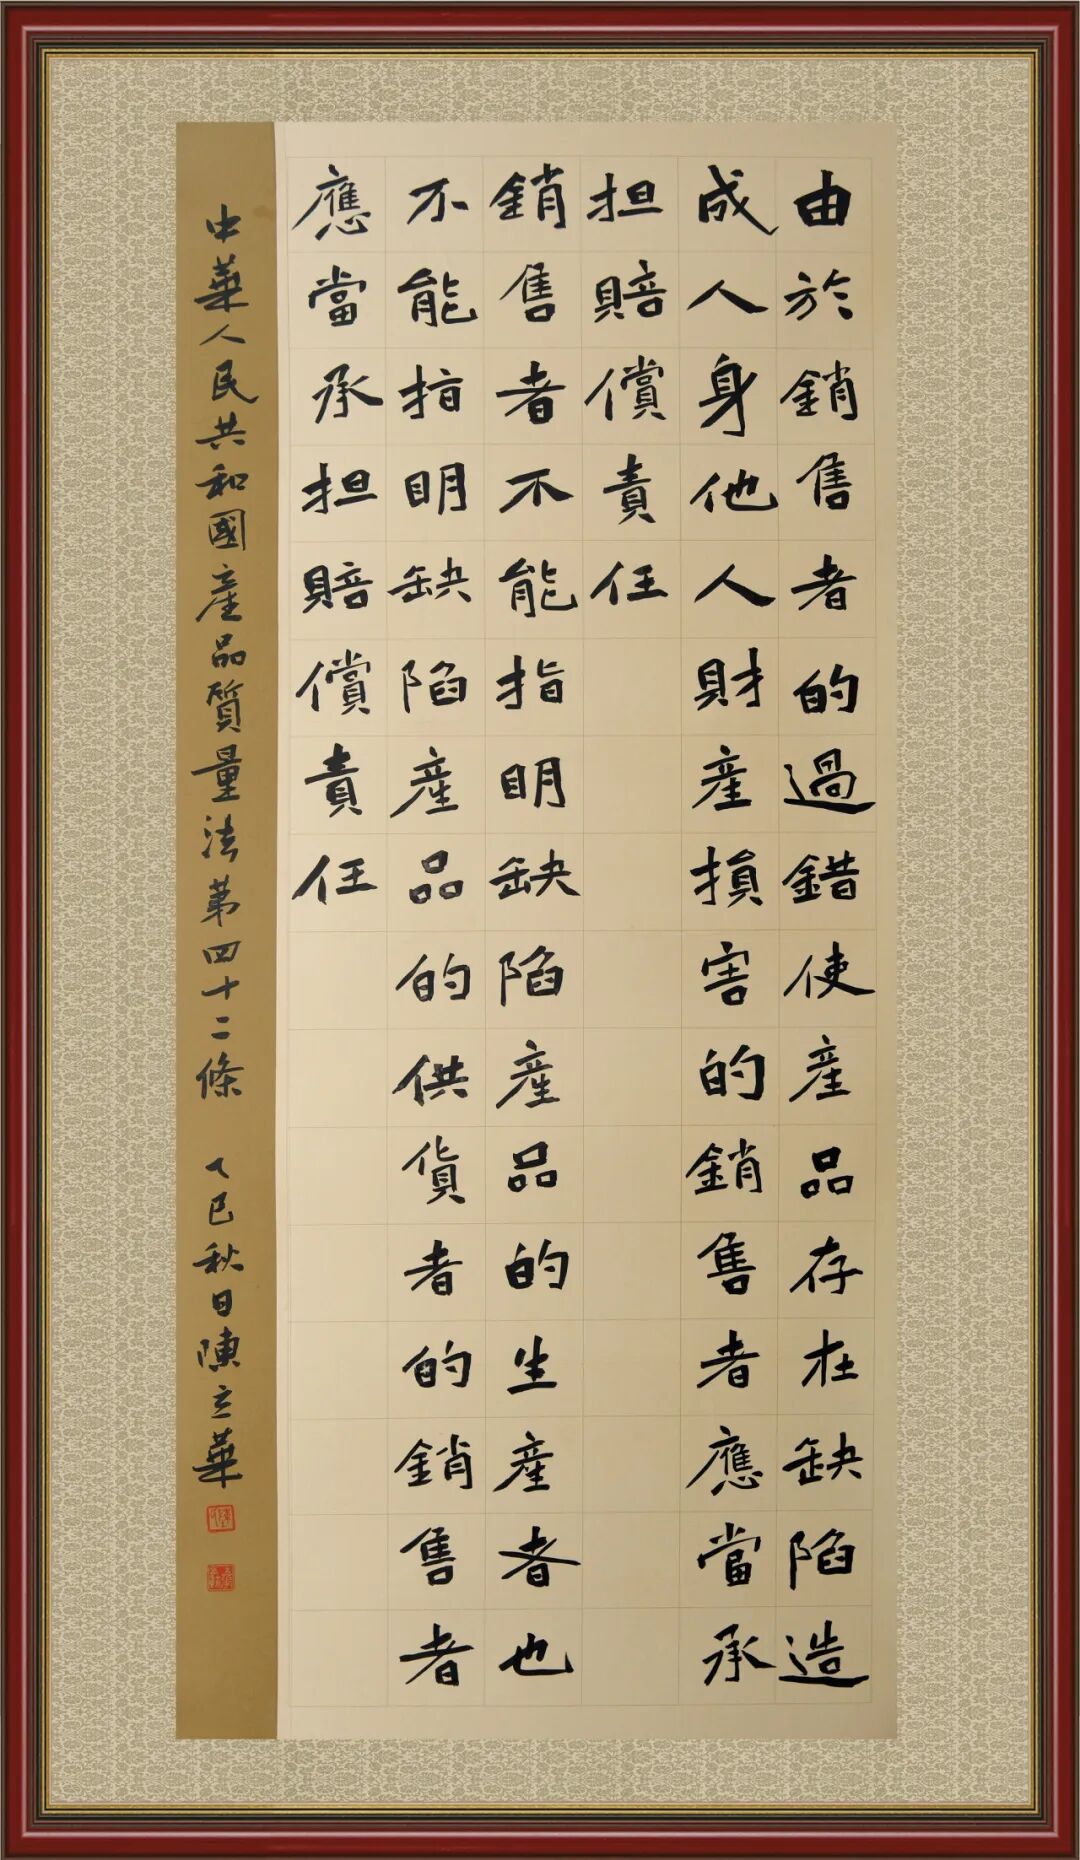 由於銷售者的過錯使産品存在缺陷造
成人身他人財産損害的銷售者應當承
担賠償責任
銷售者不能指明缺陷産品的生産者也
不能指明缺陷産品的供貨者的銷售者
應當承担賠償責任
中華人民共和國産品質量法第四十二條 乙巳秋日陳立華